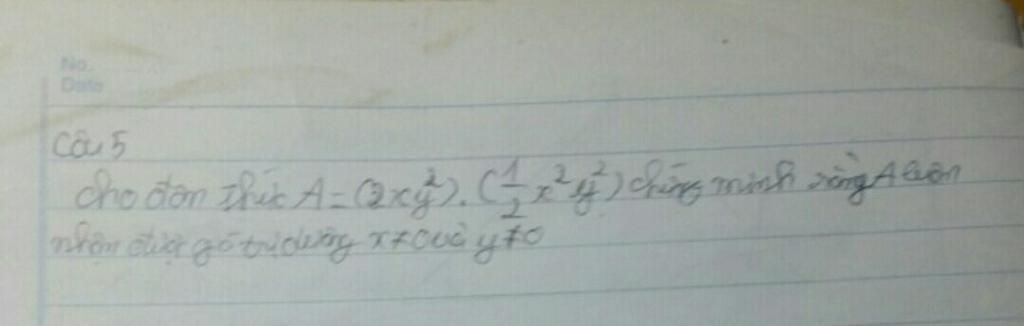 No.
Date
Câu 5
Cho đơn thức A = (2xy²). (1/2 x² y²) chứng minh rằng A luôn
nhận được giá trị dương x ≠ 0 và y ≠ 0